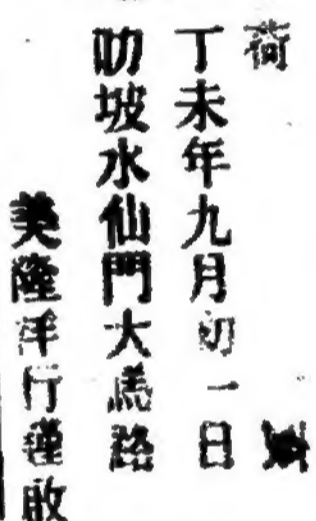 荷
丁未年九月初一日
叻坡水仙門大馬路
美隆洋行謹啟